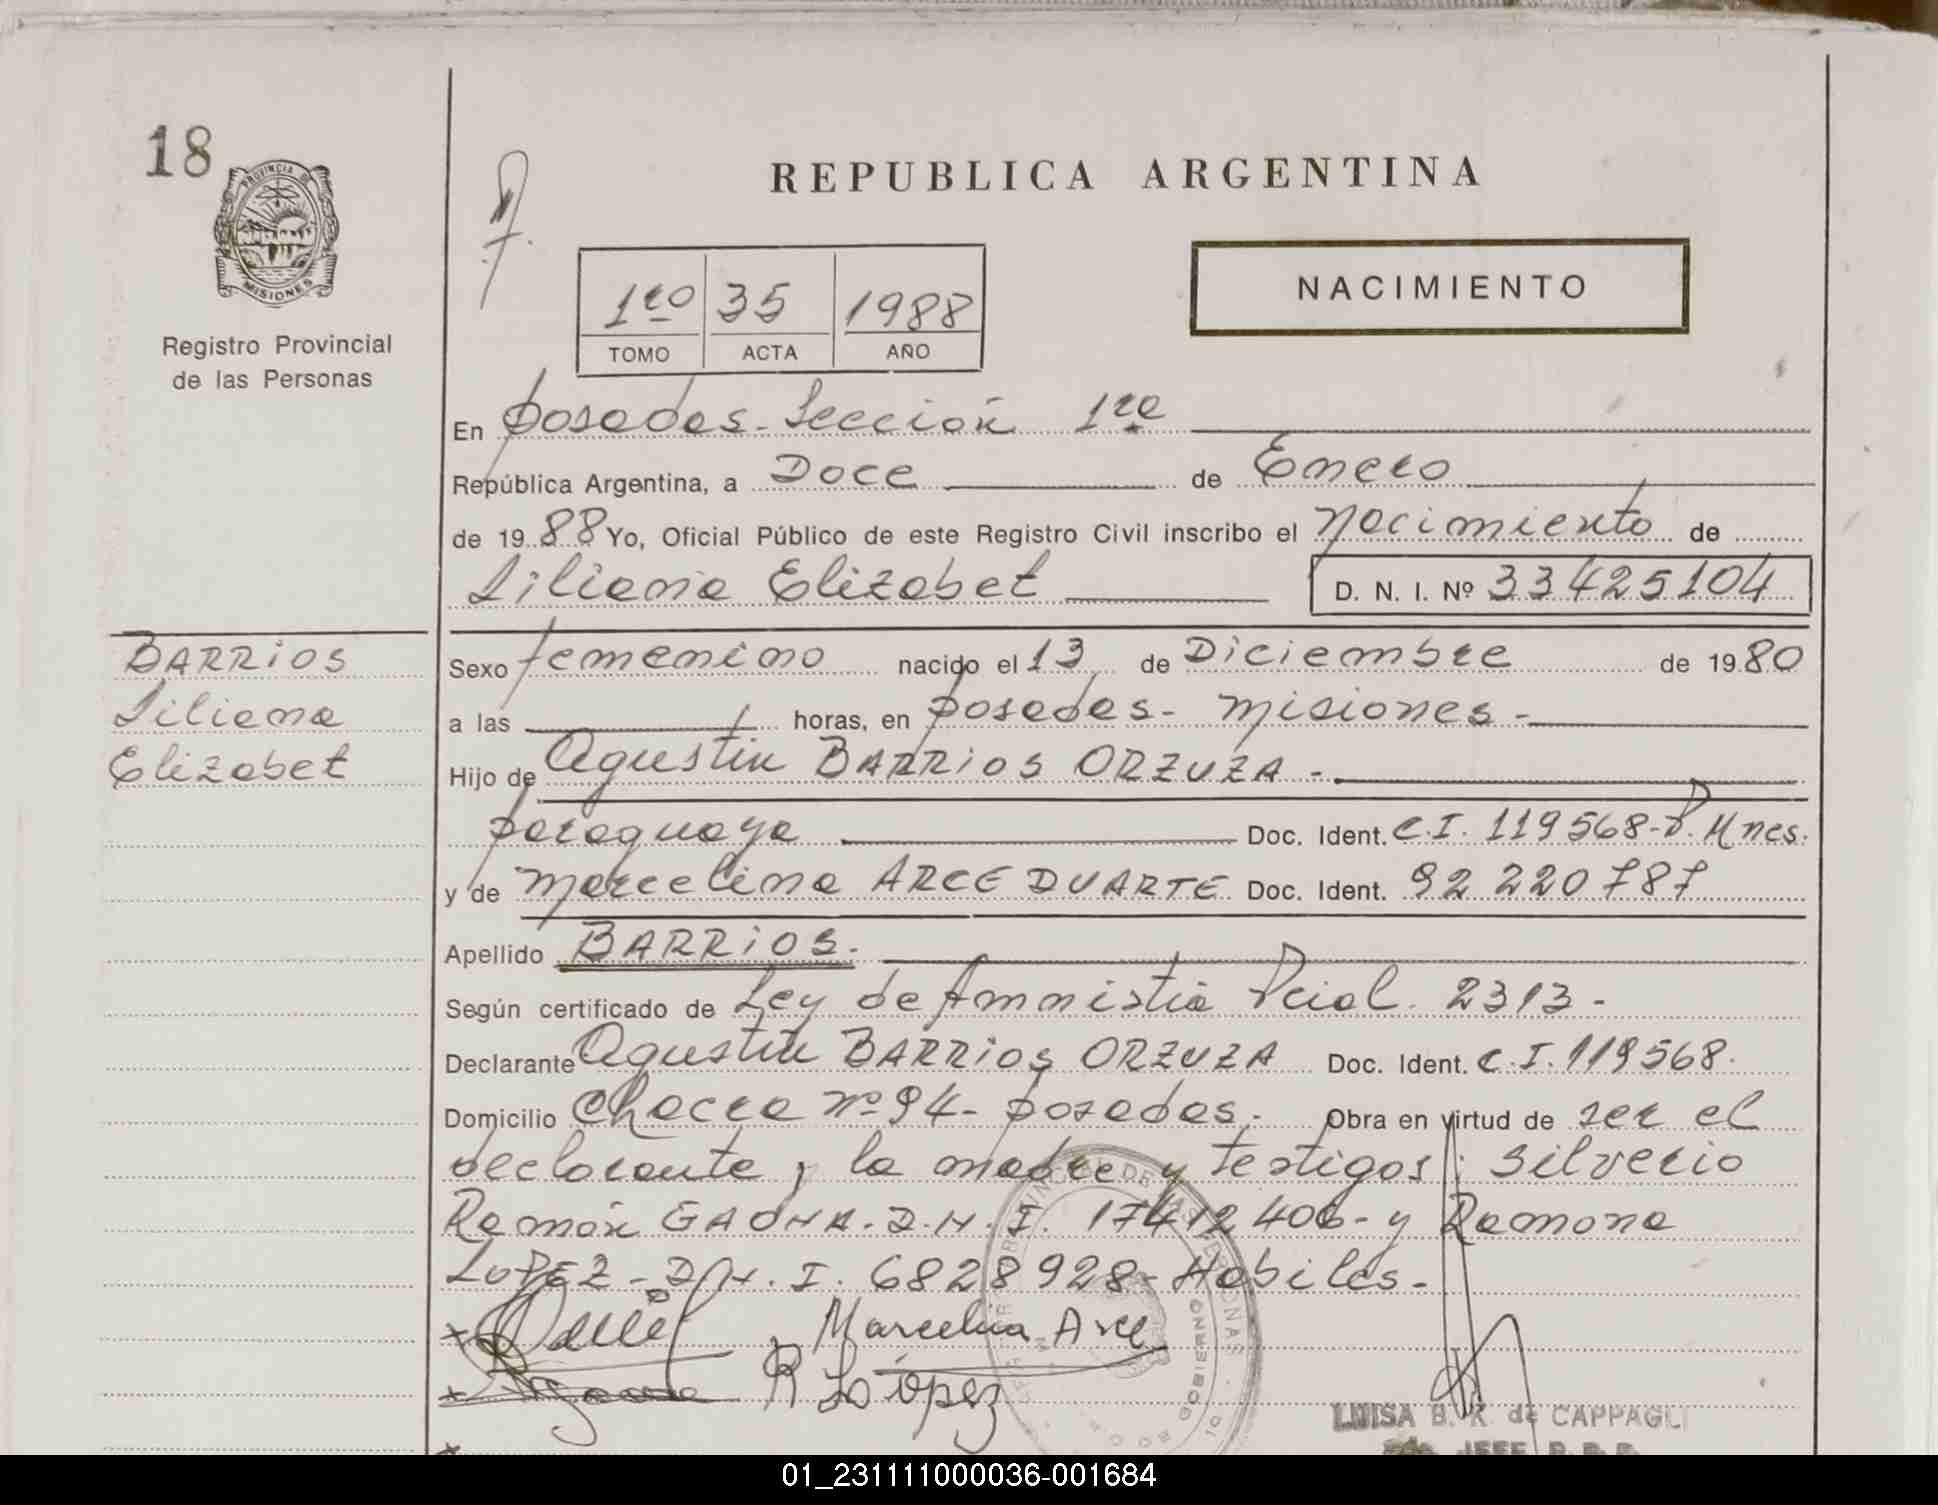 18
PROVINCIA DE
MISIONES
Registro Provincial
de las Personas
REPUBLICA ARGENTINA
NACIMIENTO
1ro 35 1988
TOMO ACTA AÑO
En Posadas - Sección 1ra
República Argentina, a Doce de Enero
de 1988 Yo, Oficial Público de este Registro Civil inscribo el Nacimiento de
Liliana Elizabet D. N. I. Nº 33425104
BARRIOS
Liliana
Elizabet
Sexo femenino nacido el 13 de Diciembre de 1980
a las horas, en Posadas - Misiones -
Hijo de Agustin BARRIOS ORZUZA -
paraguaya Doc. Ident. C.I. 119568-P. Mnes.
y de Marcelina ARCE DUARTE Doc. Ident. 92 220 787
Apellido BARRIOS.
Según certificado de Ley de Amnistia Pcial. 2313 -
Declarante Agustin BARRIOS ORZUZA Doc. Ident. C.I. 119568.
Domicilio Chacra nº 94 - Posadas. Obra en virtud de ser el
declarante, la madre y testigos: Silverio
Ramón GAONA. D.N.I. 17412406 - y Ramona
LOPEZ - D.N.I. 6828928 - Habiles -
Marcelina Arce
R López
LUISA B. K. de CAPPAGLI
JEFE R. P. P.
01_231111000036-001684